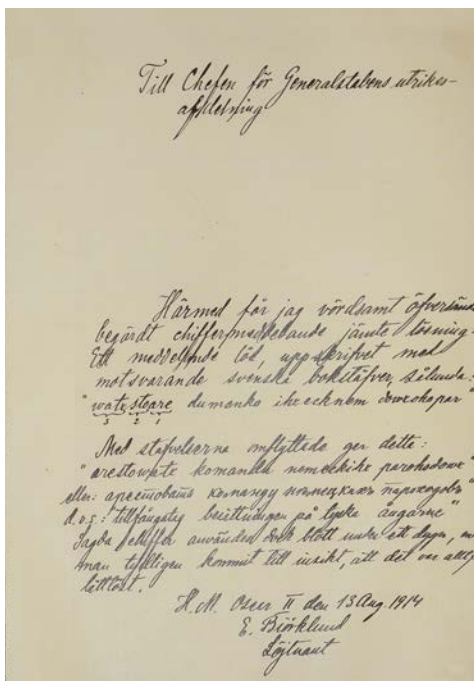 Till Chefen för Generalstabens utrikes-
afdelning
Härmed får jag vördsamt öfversända
begärdt chiffermeddelande jämte lösning.
Ett meddelande löd, uppskrifvet med
motsvarande svenska bokstäfver, sålunda:
"watesteare dumanko ihxecknem
3 2 1
Med stafvelserna omflyttade ger detta:
"arestowate komandu nemeckihx parohodowe"
eller: арестовать команду немецкихъ пароходовъ"
d.v.s.: "tillfångatag besättningen på tyska ångarne"
Sagda chiffer användes dock blott under ett dygn, 
man tydligen kommit till insikt, att det var alltf
lättlöst.
H.M. Oscar II den 13 Aug. 1914
E. Björklund
Löjtnant